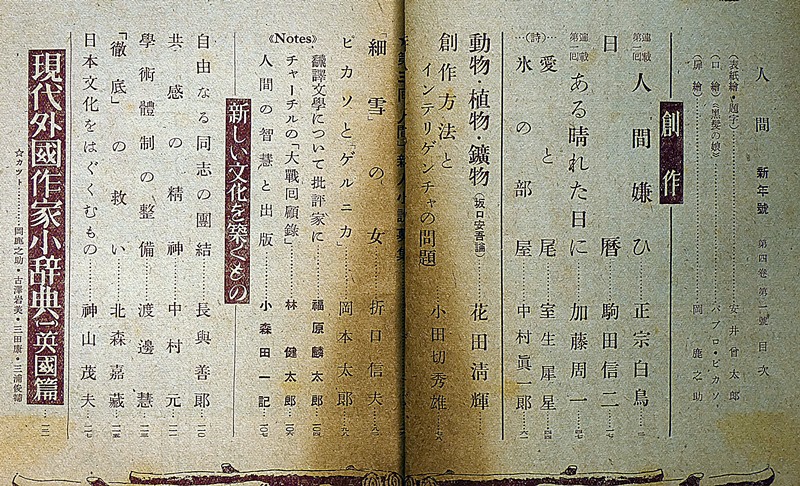 人間 新年號 第四巻第一號 目次
(表紙繪・題字)……安井曾太郎
(口繪)《黒髪の娘》……パブロ・ピカソ
(扉繪)……岡鹿之助
創作
連載 第一回 人間嫌ひ……正宗白鳥
日暦……駒田信二
連載 第一回 ある晴れた日に……加藤周一
…(詩)…愛と……尾室生犀星
氷の部屋……中村眞一郎
動物・植物・鑛物(坂口安吾論)……花田清輝
創作方法と
インテリゲンチャの問題……小田切秀雄
「細雪」の女……折口信夫
ピカソと「ゲルニカ」……岡本太郎
《Notes》
飜譯文學について批評家に……福原麟太郎
チャーチルの「大戰回顧錄」……林健太郎
人間の智慧と出版……小森田一記
新しい文化を築くもの
自由なる同志の團結……長與善郎
共感の精神……中村元
學術體制の整備……渡邊慧
「徹底」の救い……北森嘉藏
日本文化をはぐくむもの……神山茂夫
現代外國作家小辞典(一)英國篇
☆カット……岡鹿之助・古澤岩美・三田康・三浦俊輔